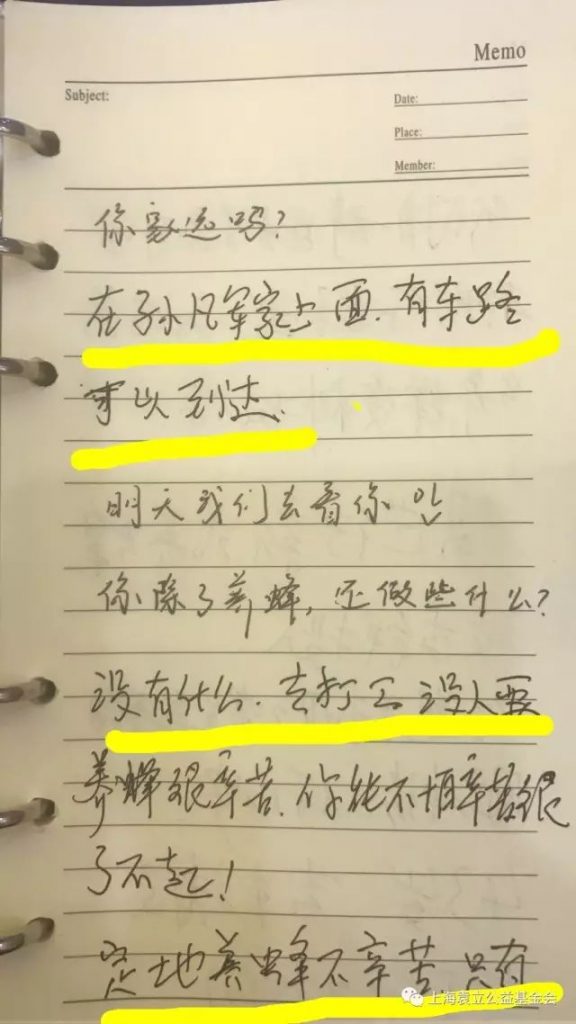 Memo
Subject:
Date:
Place:
Member:
你家远吗?
在孙凡军家上面.有车路
可以到达.
明天我们去看你
你除了养蜂,还做些什么?
没有什么.去打工没人要
养蜂很辛苦.你能不怕辛苦很
了不起!
定地养蜂不辛苦.只有
上海震立公益基金会